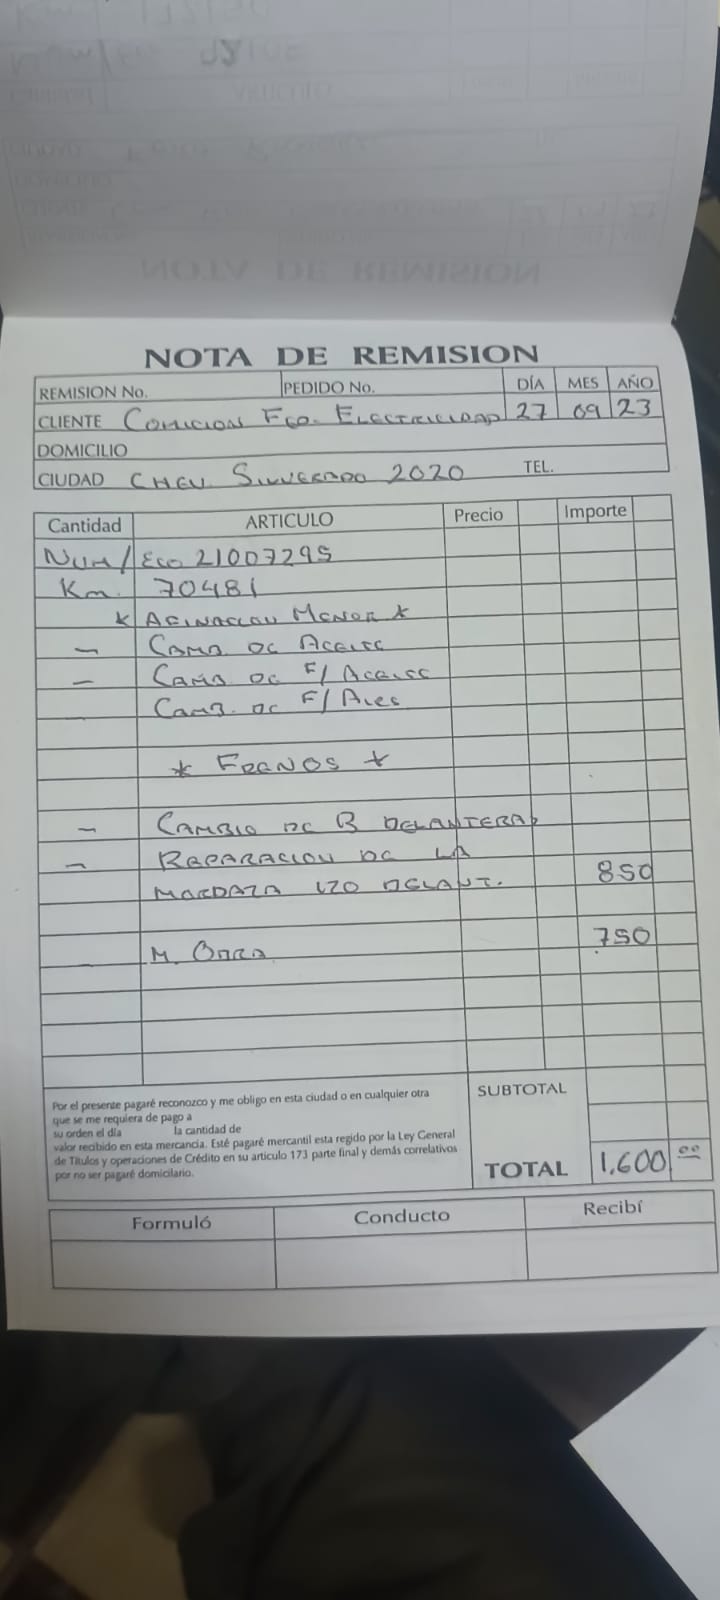 NOTA DE REMISION
REMISION No. PEDIDO No. DÍA MES AÑO
CLIENTE Comicion Fco. Electricidad 27 09 23
DOMICILIO
CIUDAD CHEV. Silverado 2020 TEL.
Cantidad ARTICULO Precio Importe
Num/Eco 21007295
Km. 70481
* Afinacion Menor *
- Camb. de Aceite
- Camb. de F/ Aceite
Camb. de F/ Aire
* Frenos *
- Cambio de B Delanteras
- Reparacion de la
Mordaza IZQ Delant. 850
M. Obra 750
Por el presente pagaré reconozco y me obligo en esta ciudad o en cualquier otra
que se me requiera de pago a
su orden el día la cantidad de
valor recibido en esta mercancia. Esté pagaré mercantil esta regido por la Ley General
de Titulos y operaciones de Crédito en su articulo 173 parte final y demás correlativos
por no ser pagaré domicilario.
SUBTOTAL
TOTAL 1,600 00
Formuló Conducto Recibí